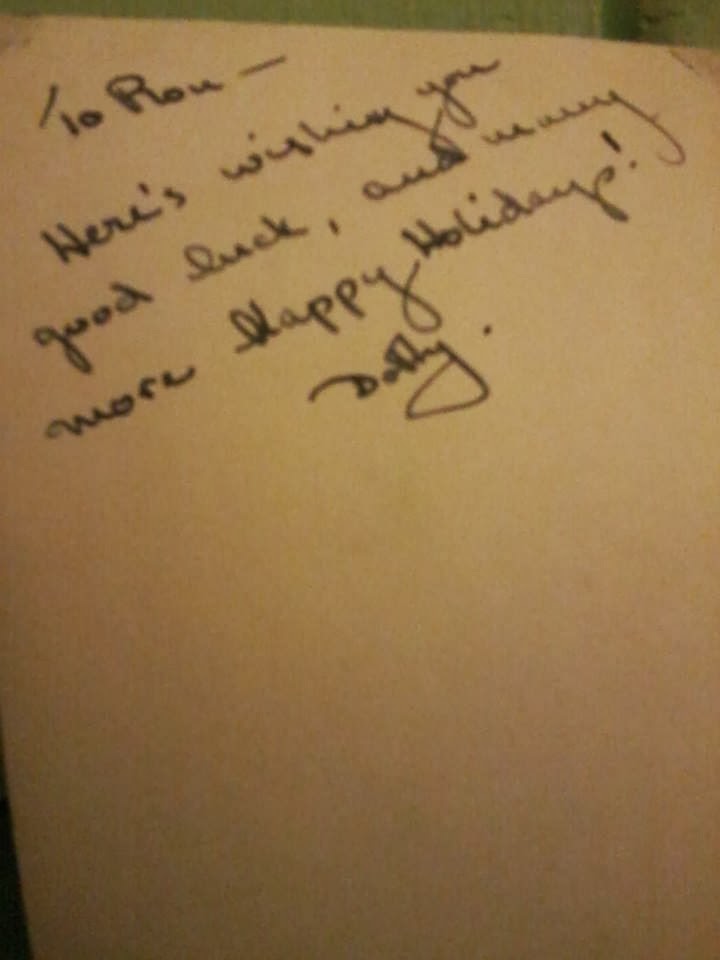 To Ron —
Here's wishing you
good luck, and many
more Happy Holidays!
Dotty.